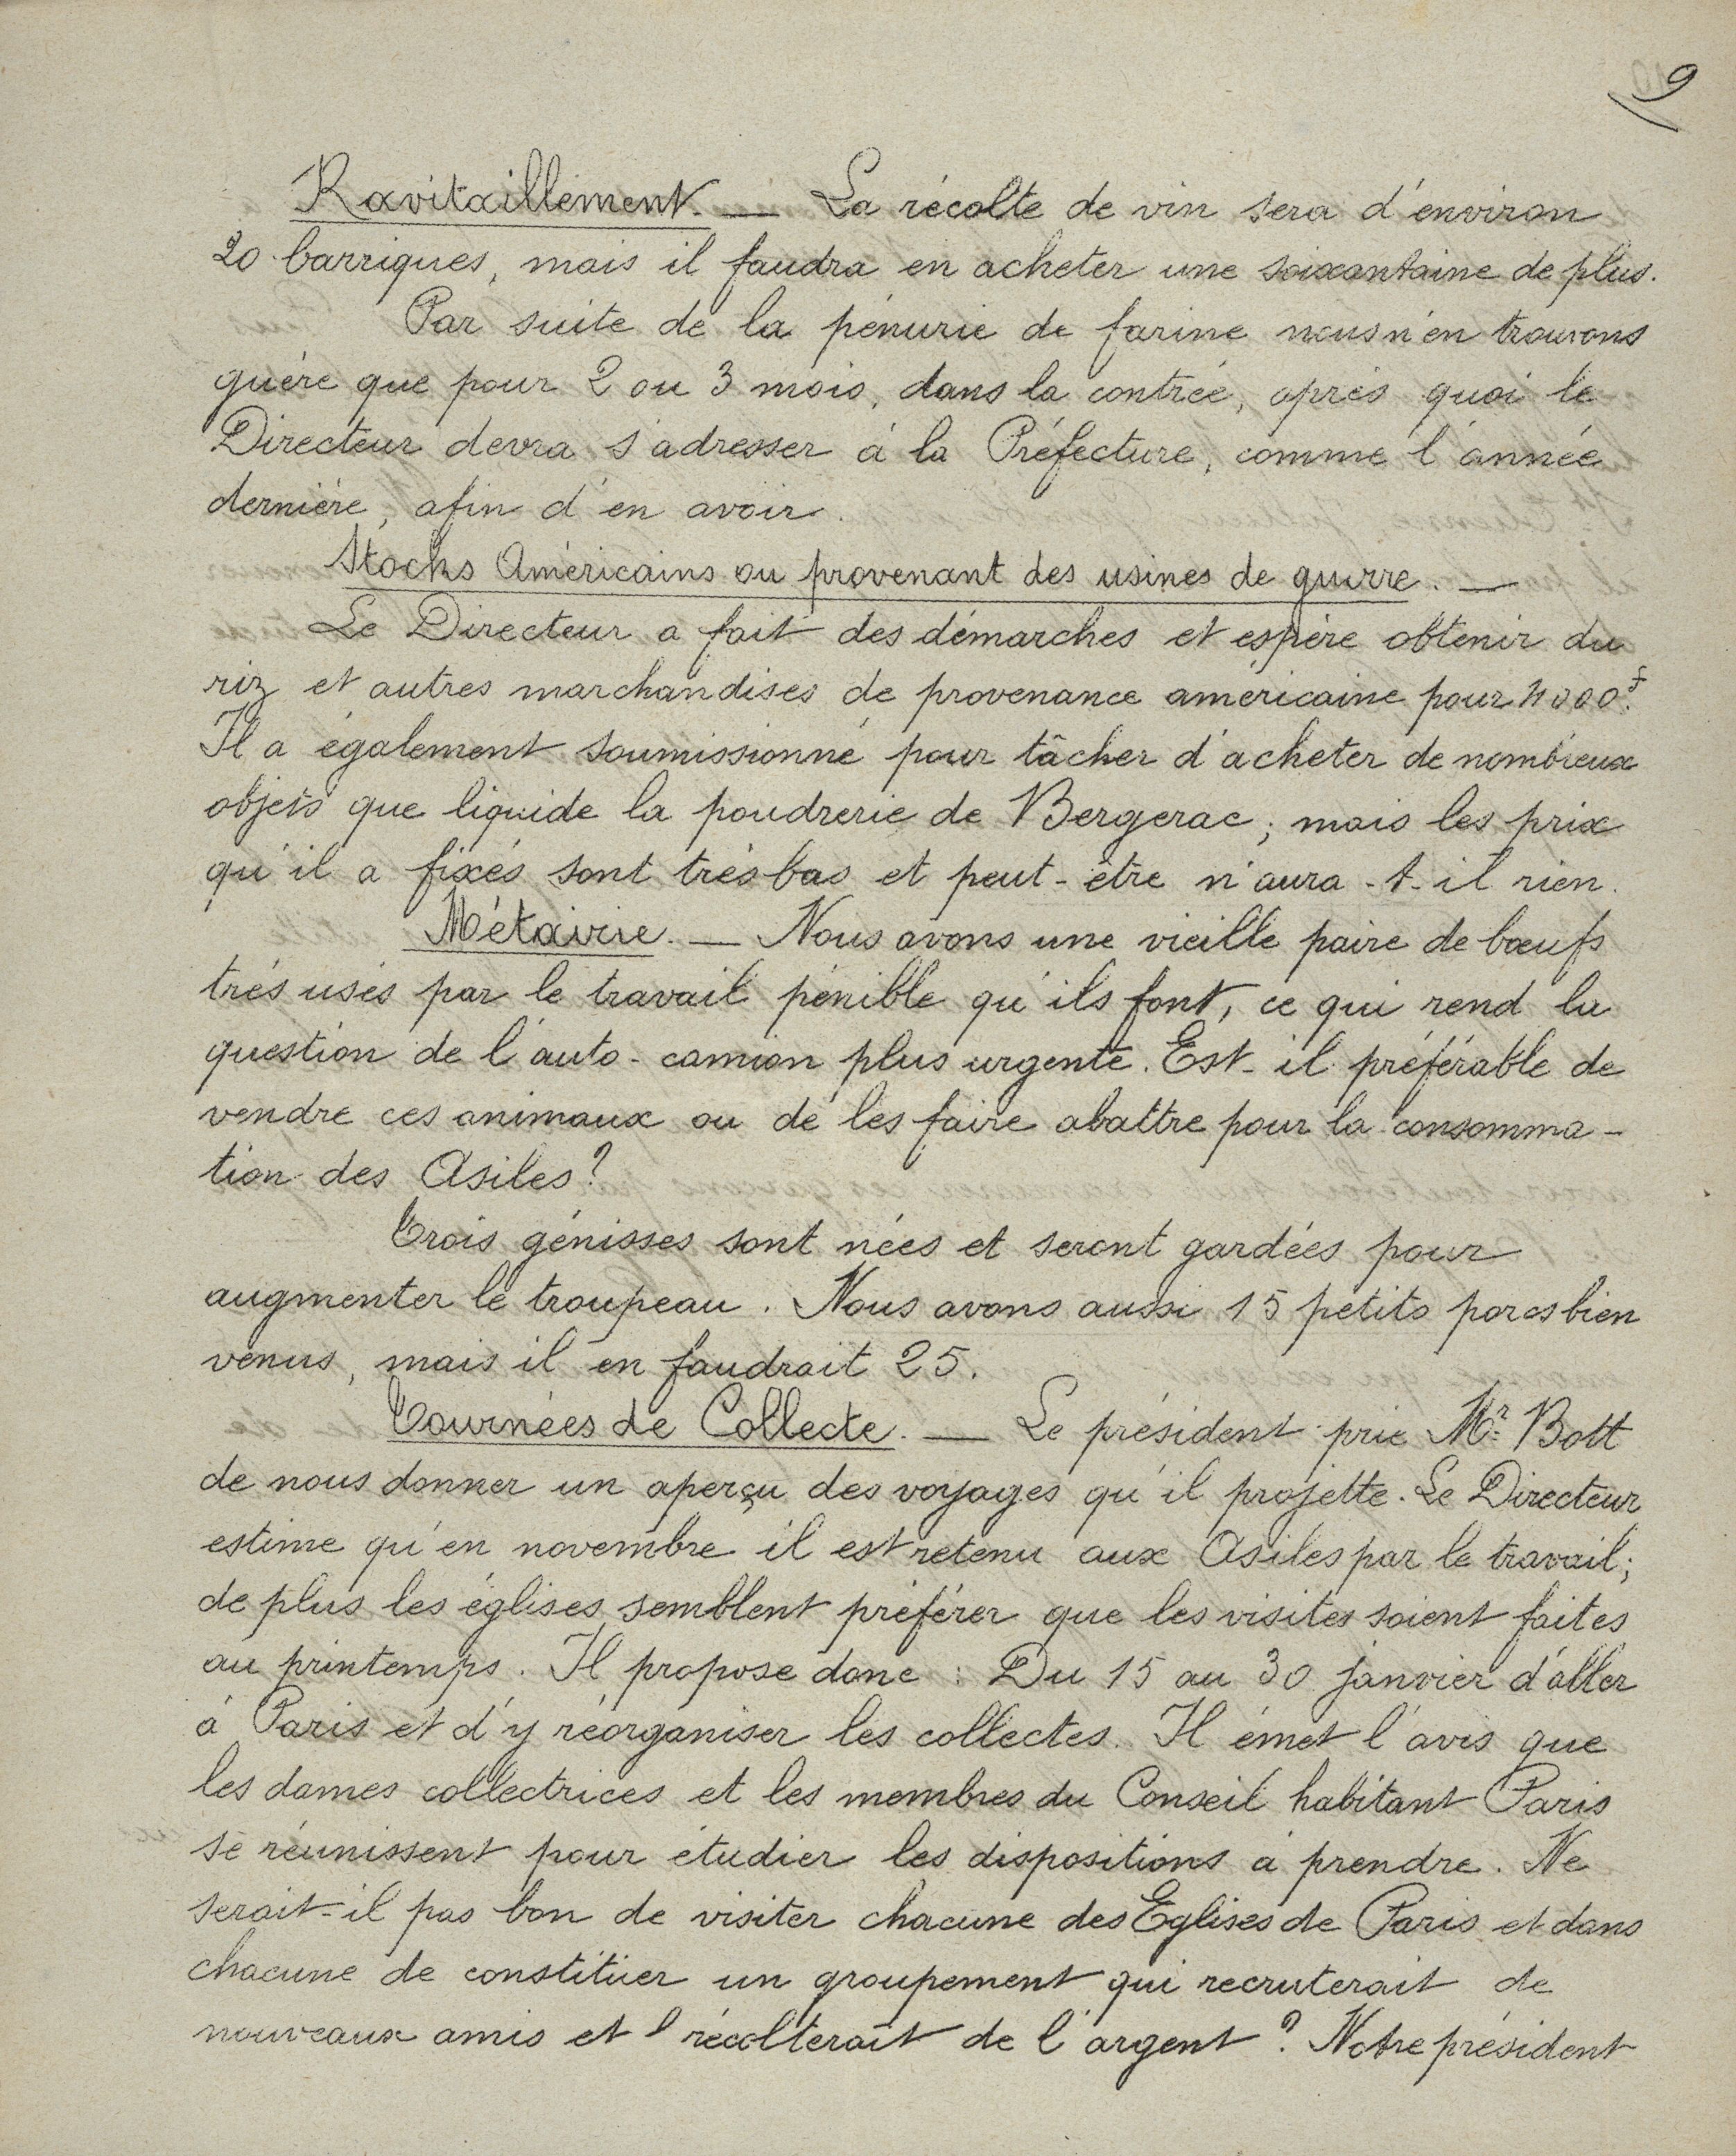 9
Ravitaillement. — La récolte de vin sera d'environ
20 barriques, mais il faudra en acheter une soixantaine de plus.
Par suite de la pénurie de farine nous n'en trouvons
guère que pour 2 ou 3 mois, dans la contrée, après quoi le
Directeur devra s'adresser à la Préfecture, comme l'année
dernière, afin d'en avoir.
Stocks Américains ou provenant des usines de guerre. —
Le Directeur a fait des démarches et espère obtenir du
riz et autres marchandises de provenance américaine pour
Il a également soumissionné pour tâcher d'acheter de nombreux
objets que liquide la poudrerie de Bergerac ; mais les prix
qu'il a fixés sont très bas et peut-être n'aura-t-il rien.
Métairie. — Nous avons une vieille paire de bœufs
très usés par le travail pénible qu'ils font, ce qui rend la
question de l'auto-camion plus urgente. Est-il préférable de
vendre ces animaux ou de les faire abattre pour la consomma-
tion des Asiles ?
Trois génisses sont nées et seront gardées pour
augmenter le troupeau. Nous avons aussi 15 petits porcs bien
venus, mais il en faudrait 25.
Tournées de Collecte. — Le président prie Mr Bott
de nous donner un aperçu des voyages qu'il projette. Le Directeur
estime qu'en novembre il est retenu aux Asiles par le travail ;
de plus les églises semblent préférer que les visites soient faites
au printemps. Il propose donc : Du 15 au 30 janvier d'aller
à Paris et d'y réorganiser les collectes. Il émet l'avis que
les dames collectrices et les membres du Conseil habitant Paris
se réunissent pour étudier les dispositions à prendre. Ne
serait-il pas bon de visiter chacune des Eglises de Paris et dans
chacune de constituer un groupement qui recruterait de
nouveaux amis et récolterait de l'argent ? Notre président